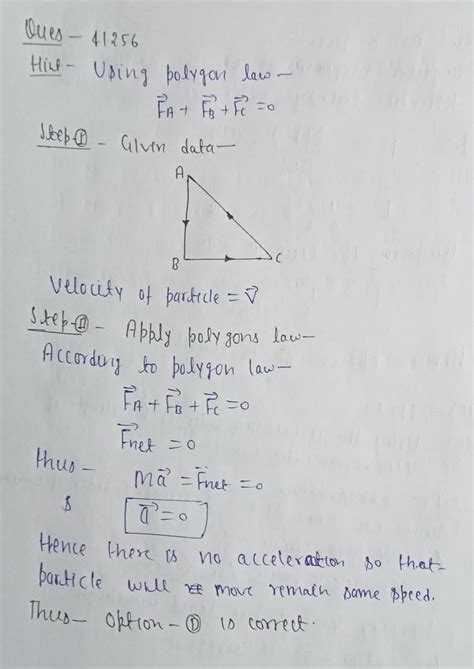 Ques - 41256
Hint - Using polygon law -
F⃗A + F⃗B + F⃗C = 0
Step-① - Given data -
A
B
C
Velocity of particle = V⃗
Step-② - Apply polygons law -
According to polygon law -
F⃗A + F⃗B + F⃗C = 0
F⃗net = 0
thus - ma⃗ = F⃗net = 0
$ a⃗ = 0
Hence there is no acceleration so that
particle will move remain same speed.
Thus - option - ① is correct.